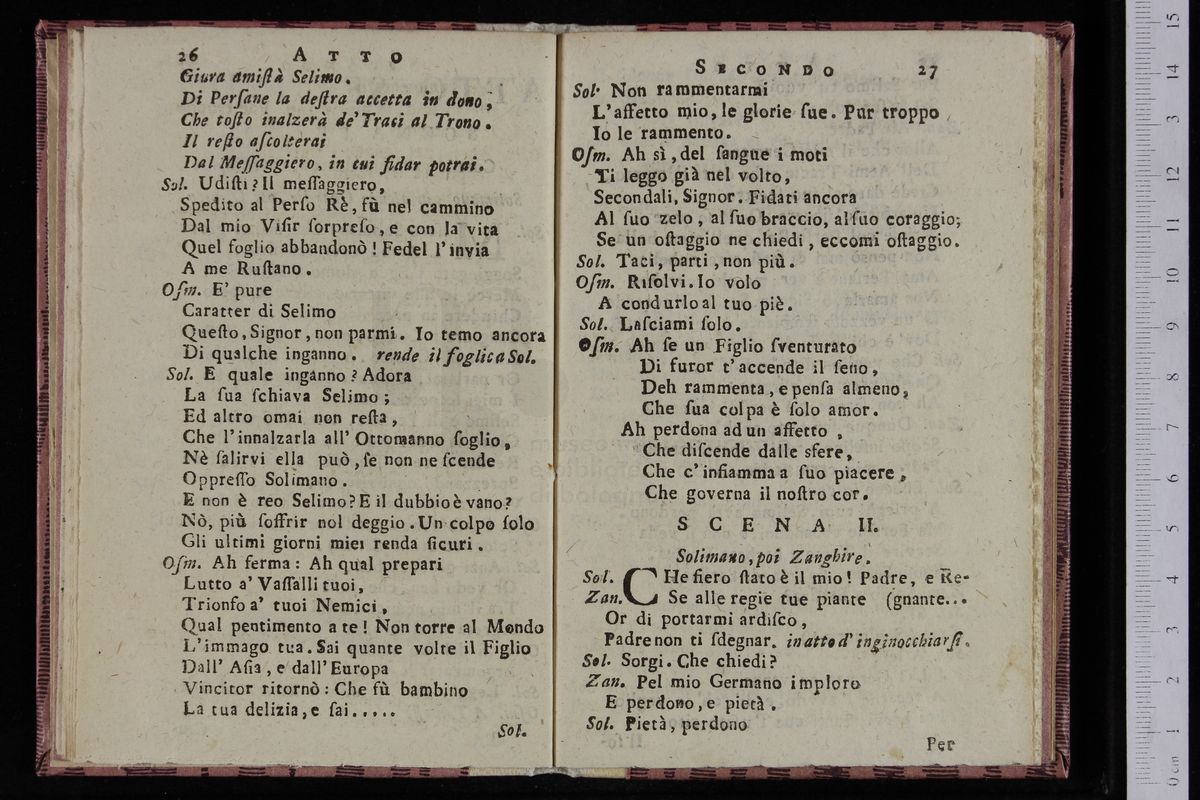 26 ATTO
Giura amiſtà Selimo.
Di Perſane la deſtra accetta in dono,
Che toſto inalzerà de' Traci al Trono.
Il reſto aſcolterai
Dal Meſſaggiero, in cui fidar potrai.
Sol. Udiſti? Il meſſaggiero,
Spedito al Perſo Rè, fù nel cammino
Dal mio Viſir ſorpreſo, e con la vita
Quel foglio abbandonò! Fedel l'invia
A me Ruſtano.
Oſm. E' pure
Caratter di Selimo
Queſto, Signor, non parmi. Io temo ancora
Di qualche inganno. rende il foglio a Sol.
Sol. E quale inganno? Adora
La ſua ſchiava Selimo;
Ed altro omai non reſta,
Che l'innalzarla all' Ottomanno ſoglio,
Nè ſalirvi ella può, ſe non ne ſcende
Oppreſſo Solimano.
E non è reo Selimo? E il dubbio è vano?
Nò, più ſoffrir nol deggio. Un colpo ſolo
Gli ultimi giorni miei renda ſicuri.
Oſm. Ah ferma: Ah qual prepari
Lutto a' Vaſſalli tuoi,
Trionfo a' tuoi Nemici,
Qual pentimento a te! Non torre al Mondo
L'immago tua. Sai quante volte il Figlio
Dall' Aſia, e dall' Europa
Vincitor ritornò: Che fù bambino
La tua delizia, e ſai.....
Sol.
SECONDO 27
Sol. Non rammentarmi
L'affetto mio, le glorie ſue. Pur troppo
Io le rammento.
Oſm. Ah sì, del ſangue i moti
Ti leggo già nel volto,
Secondali, Signor. Fidati ancora
Al ſuo zelo, al ſuo braccio, al ſuo coraggio;
Se un oſtaggio ne chiedi, eccomi oſtaggio.
Sol. Taci, parti, non più.
Oſm. Riſolvi. Io volo
A condurlo al tuo piè.
Sol. Laſciami ſolo.
Oſm. Ah ſe un Figlio ſventurato
Di furor t'accende il ſeno,
Deh rammenta, e penſa almeno,
Che ſua colpa è ſolo amor.
Ah perdona ad un affetto,
Che diſcende dalle sfere,
Che c'infiamma a ſuo piacere,
Che governa il noſtro cor.
SCENA II.
Solimano, poi Zanghire.
Sol. CHe fiero ſtato è il mio! Padre, e Re-
Zan. Se alle regie tue piante (gnante...
Or di portarmi ardiſco,
Padre non ti ſdegnar. in atto d' inginocchiarſi.
Sol. Sorgi. Che chiedi?
Zan. Pel mio Germano imploro
E perdono, e pietà.
Sol. Pietà, perdono
Per
15
14
13
12
11
10
9
8
7
6
5
4
3
2
1
0 cm